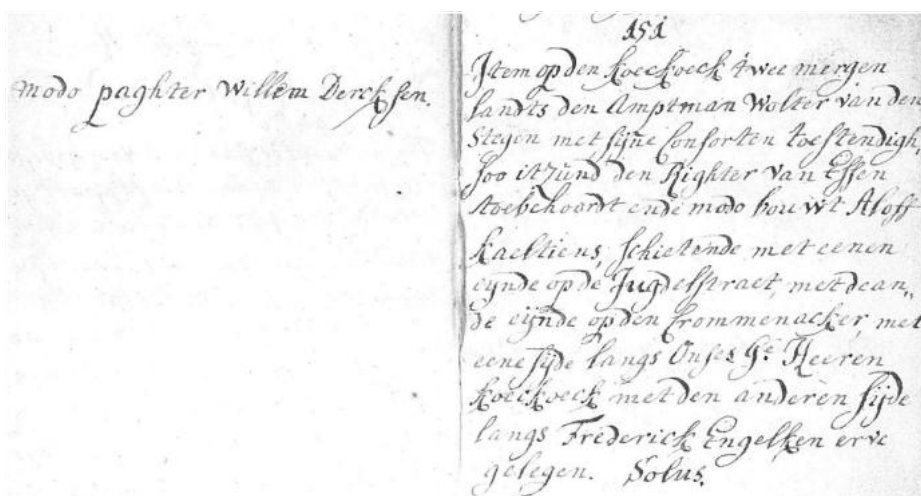 modo paghter Willem Dercksen.
151
Item op den koeckoeck twee mergen
landts den Amptman Wolter van den
Stegen met sijne Consorten toestendigh,
soo itzund den Righter van Essen
toebehoordt ende modo bouwt Aloff
kaeltiens, schietende met eenen
eynde op de Jugdelstraet, met de an„
de eijnde op den Crommenacker, met
eene sijde langs Onses Ge. Heeren
koeckoeck met den anderen sijde
langs Frederick Engelken erve
gelegen. Solus.